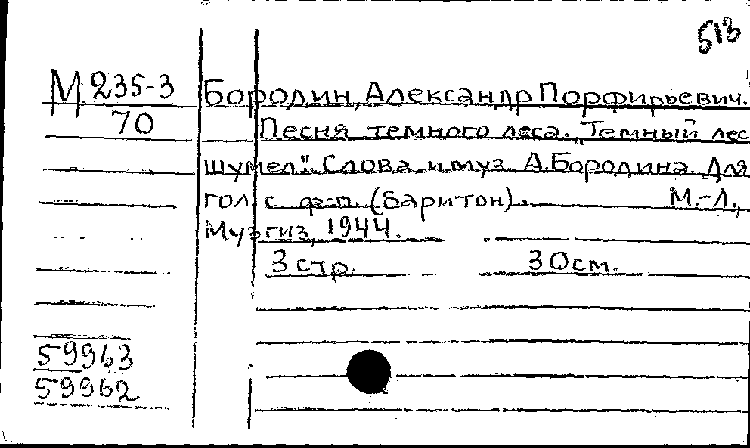 513
М 235-3
70
Бородин, Александр Порфирьевич.
Песня темного леса. "Темный лес
шумел". Слова и муз. А. Бородина. Для
гол. с ф-п. (баритон). М.-Л.,
Музгиз, 1944.
3 стр. 30см.
59963
59962